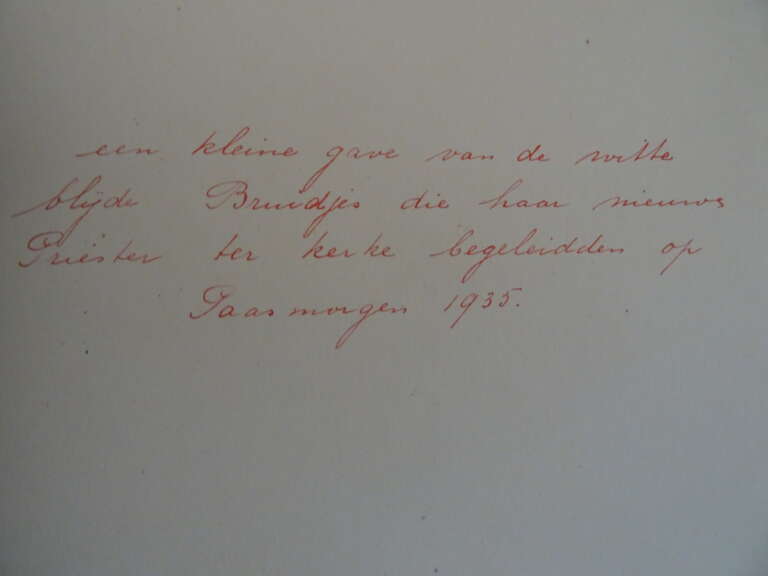 een kleine gave van de witte
blijde Bruidjes die haar nieuws
Priëster ter kerke begeleidden op
Paasmorgen 1935.